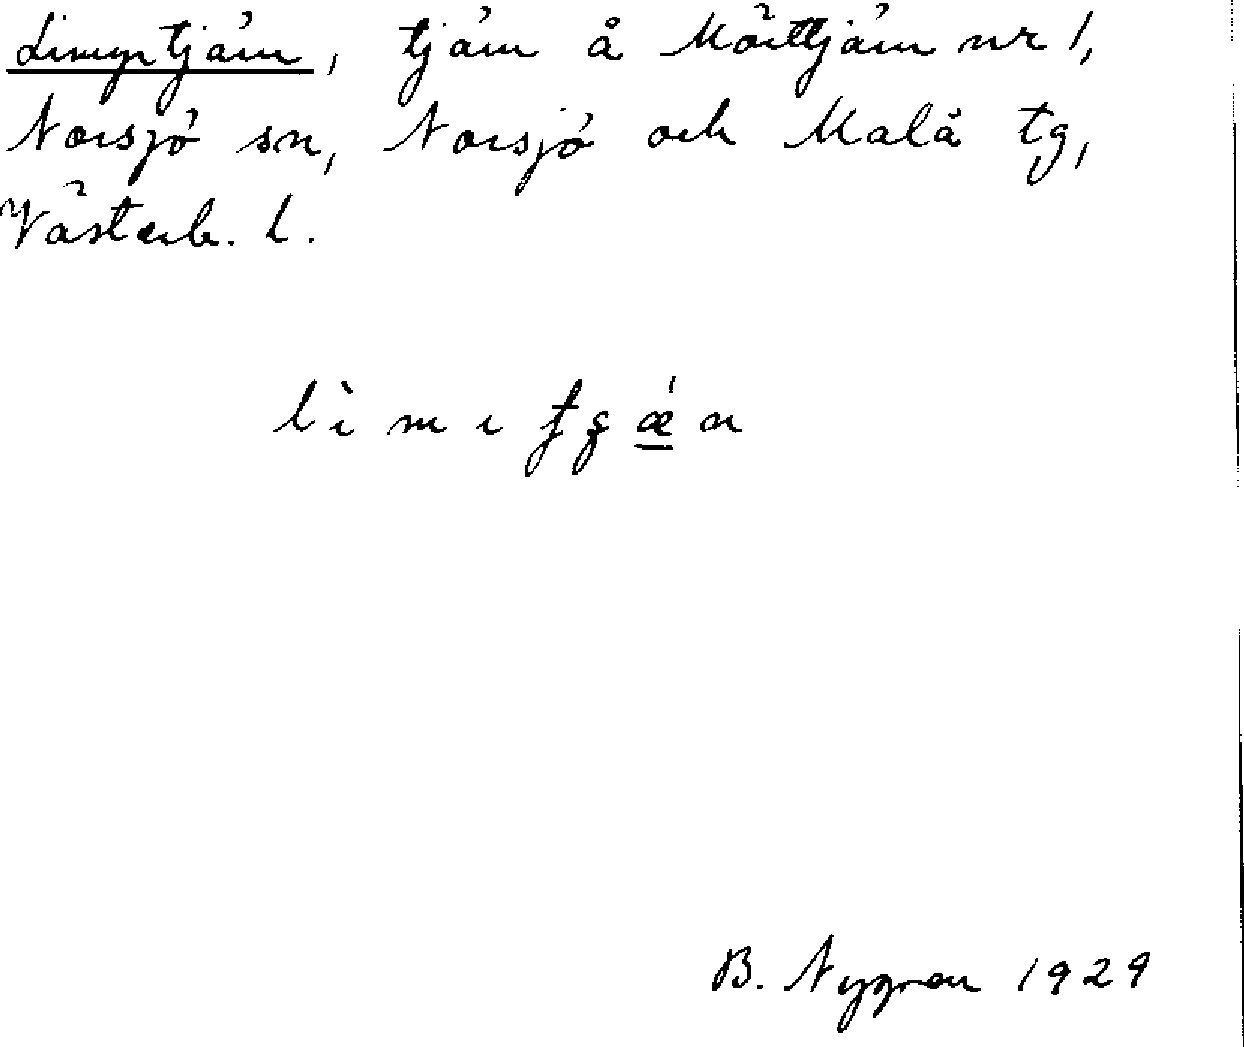 Limyrtjärn, tjärn å Mörttjärn nr 1,
Norsjö sn, Norsjö och Malå tg,
Västerb. l.
B. Nygren 1929